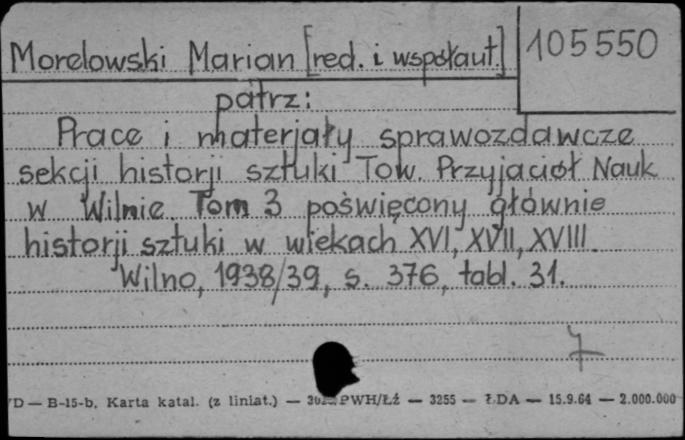 Morelowski Marian [red. i współaut.] 105550
patrz:
Prace i materjały sprawozdawcze
sekcji historji sztuki Tow. Przyjaciół Nauk
w Wilnie. Tom 3 poświęcony głównie
historji sztuki w wiekach XVI, XVII, XVIII.
Wilno, 1938/39, s. 376, tabl. 31.
D — B-15-b. Karta katal. (z liniat.) — PWH/Łź — 3255 — ŁDA — 15.9.64 — 2.000.000